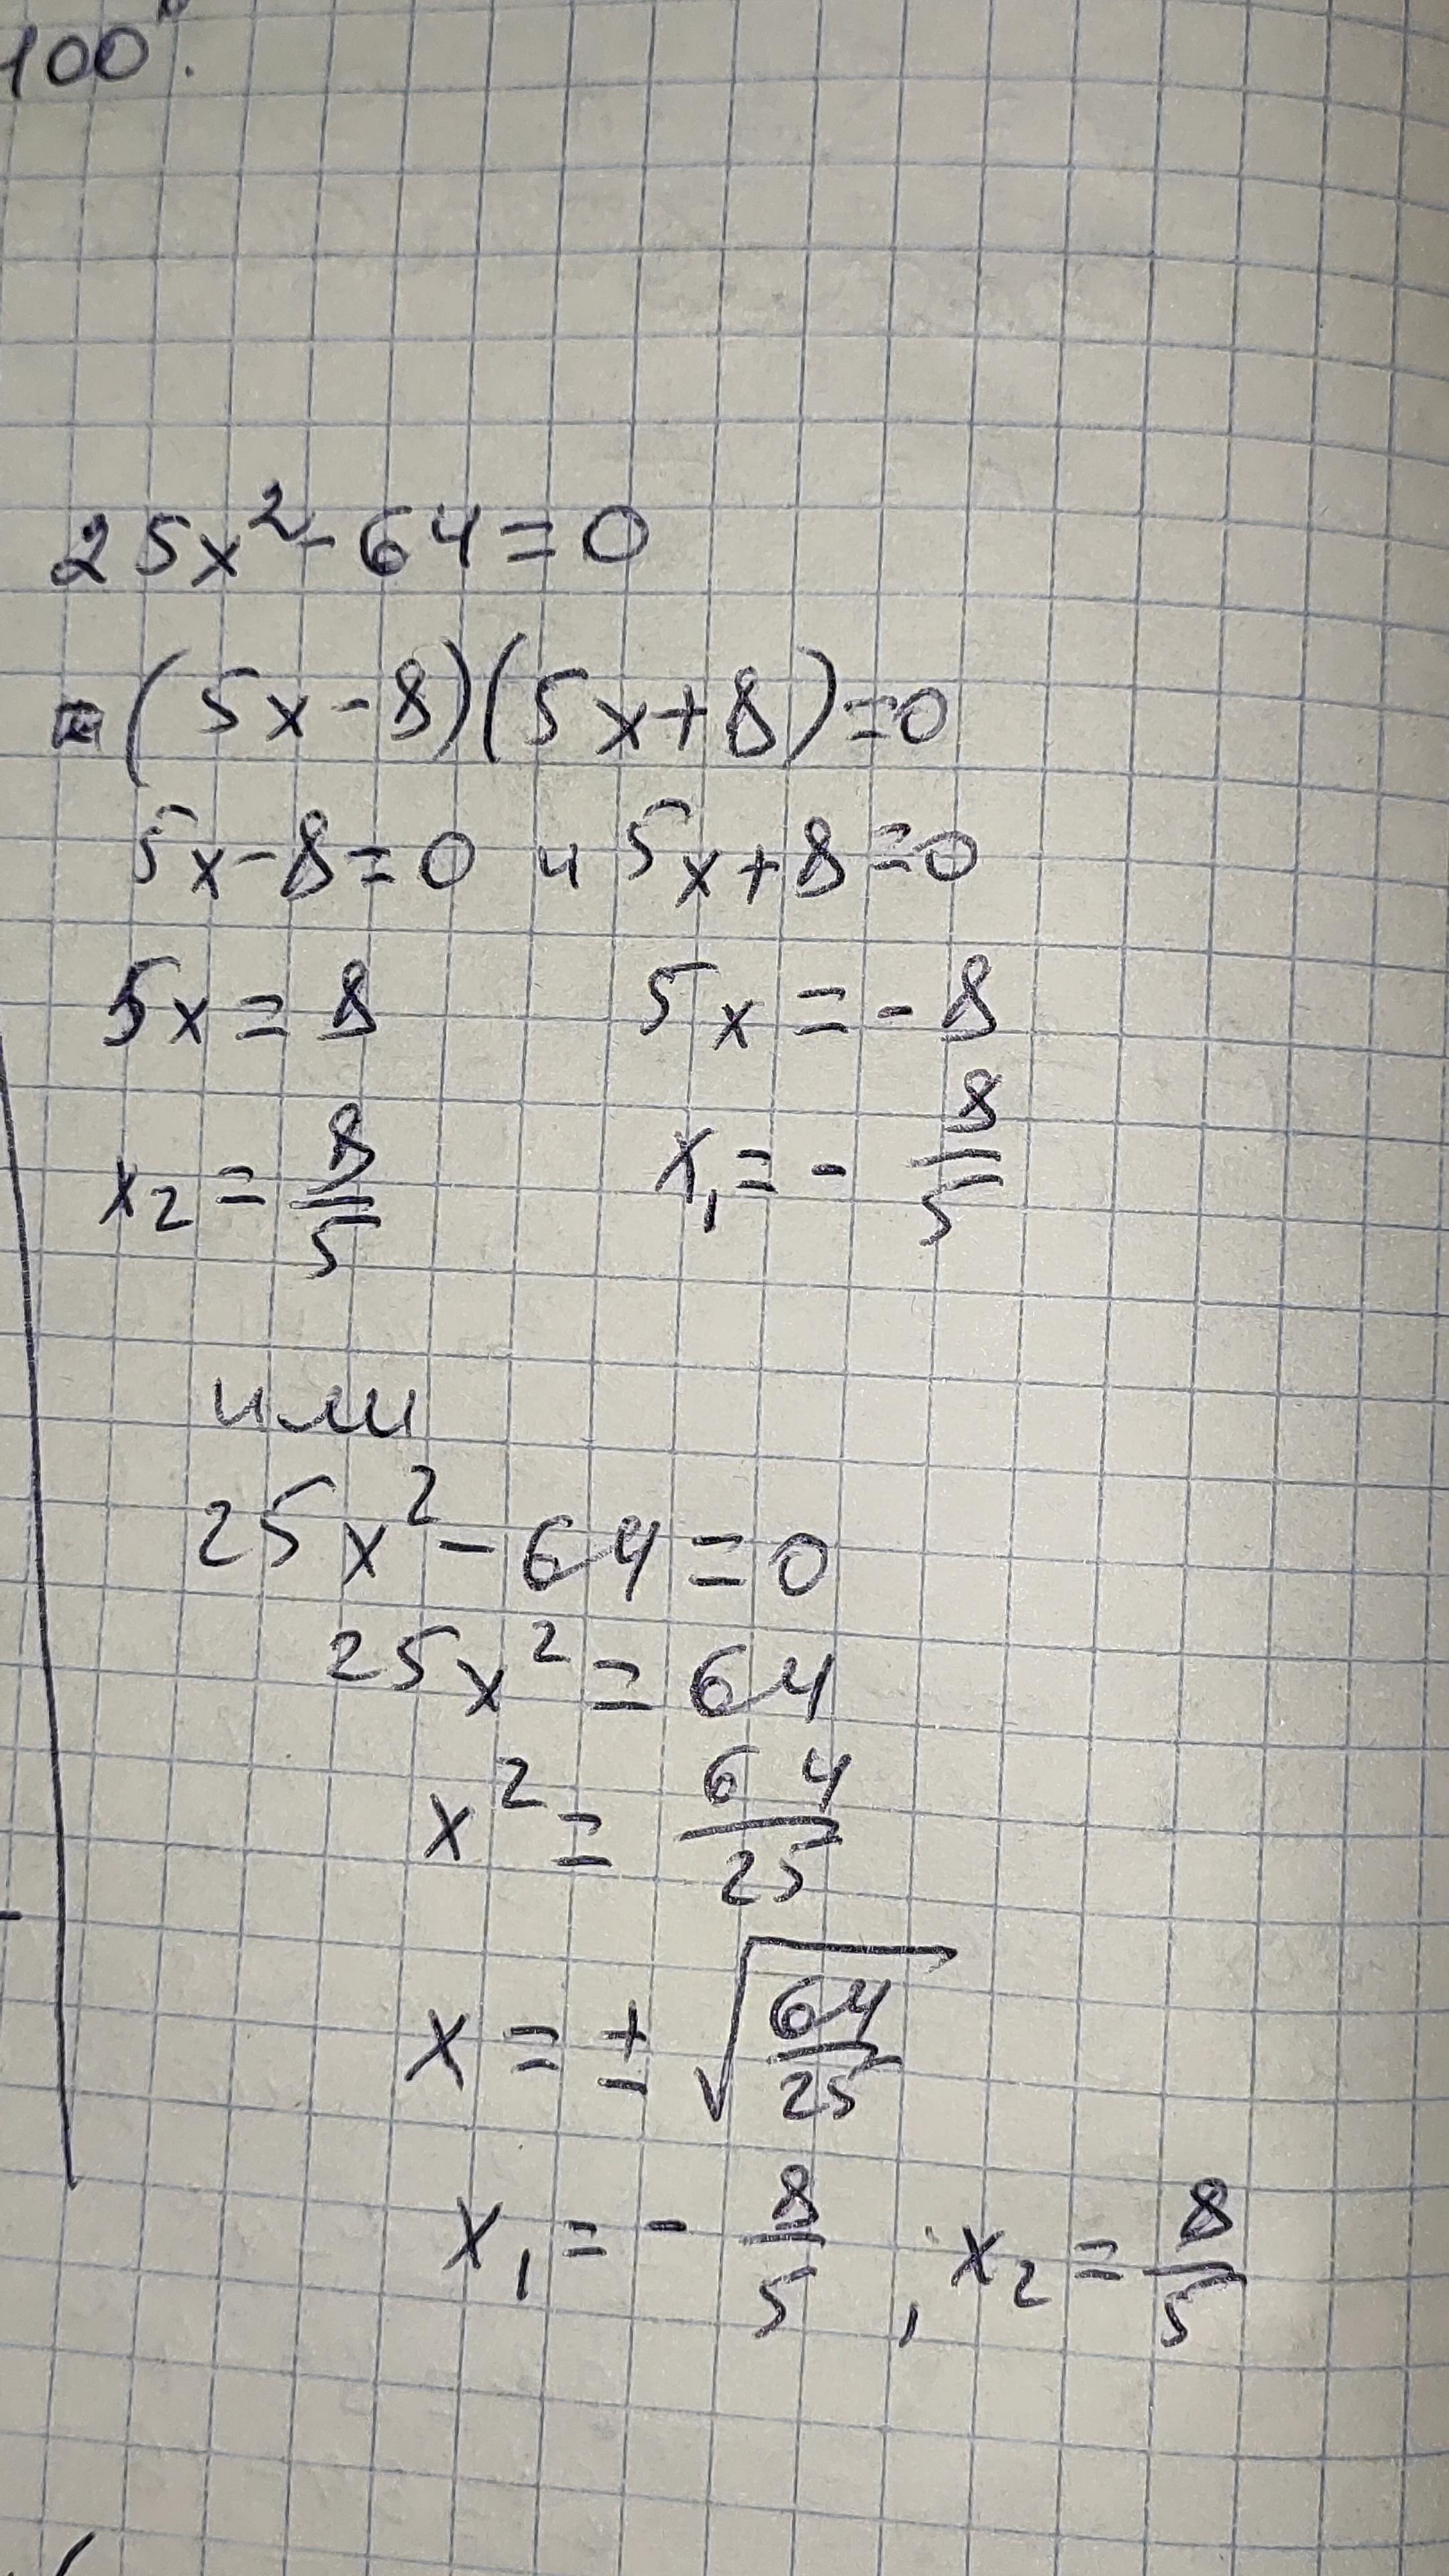 100°.
25x² - 64 = 0
(5x - 8)(5x + 8) = 0
5x - 8 = 0 и 5x + 8 = 0
5x = 8 5x = - 8
x₂ = 8/5 x₁ = - 8/5
или
25x² - 64 = 0
25x² = 64
x² = 64/25
x = ± √(64/25)
x₁ = - 8/5 , x₂ = 8/5